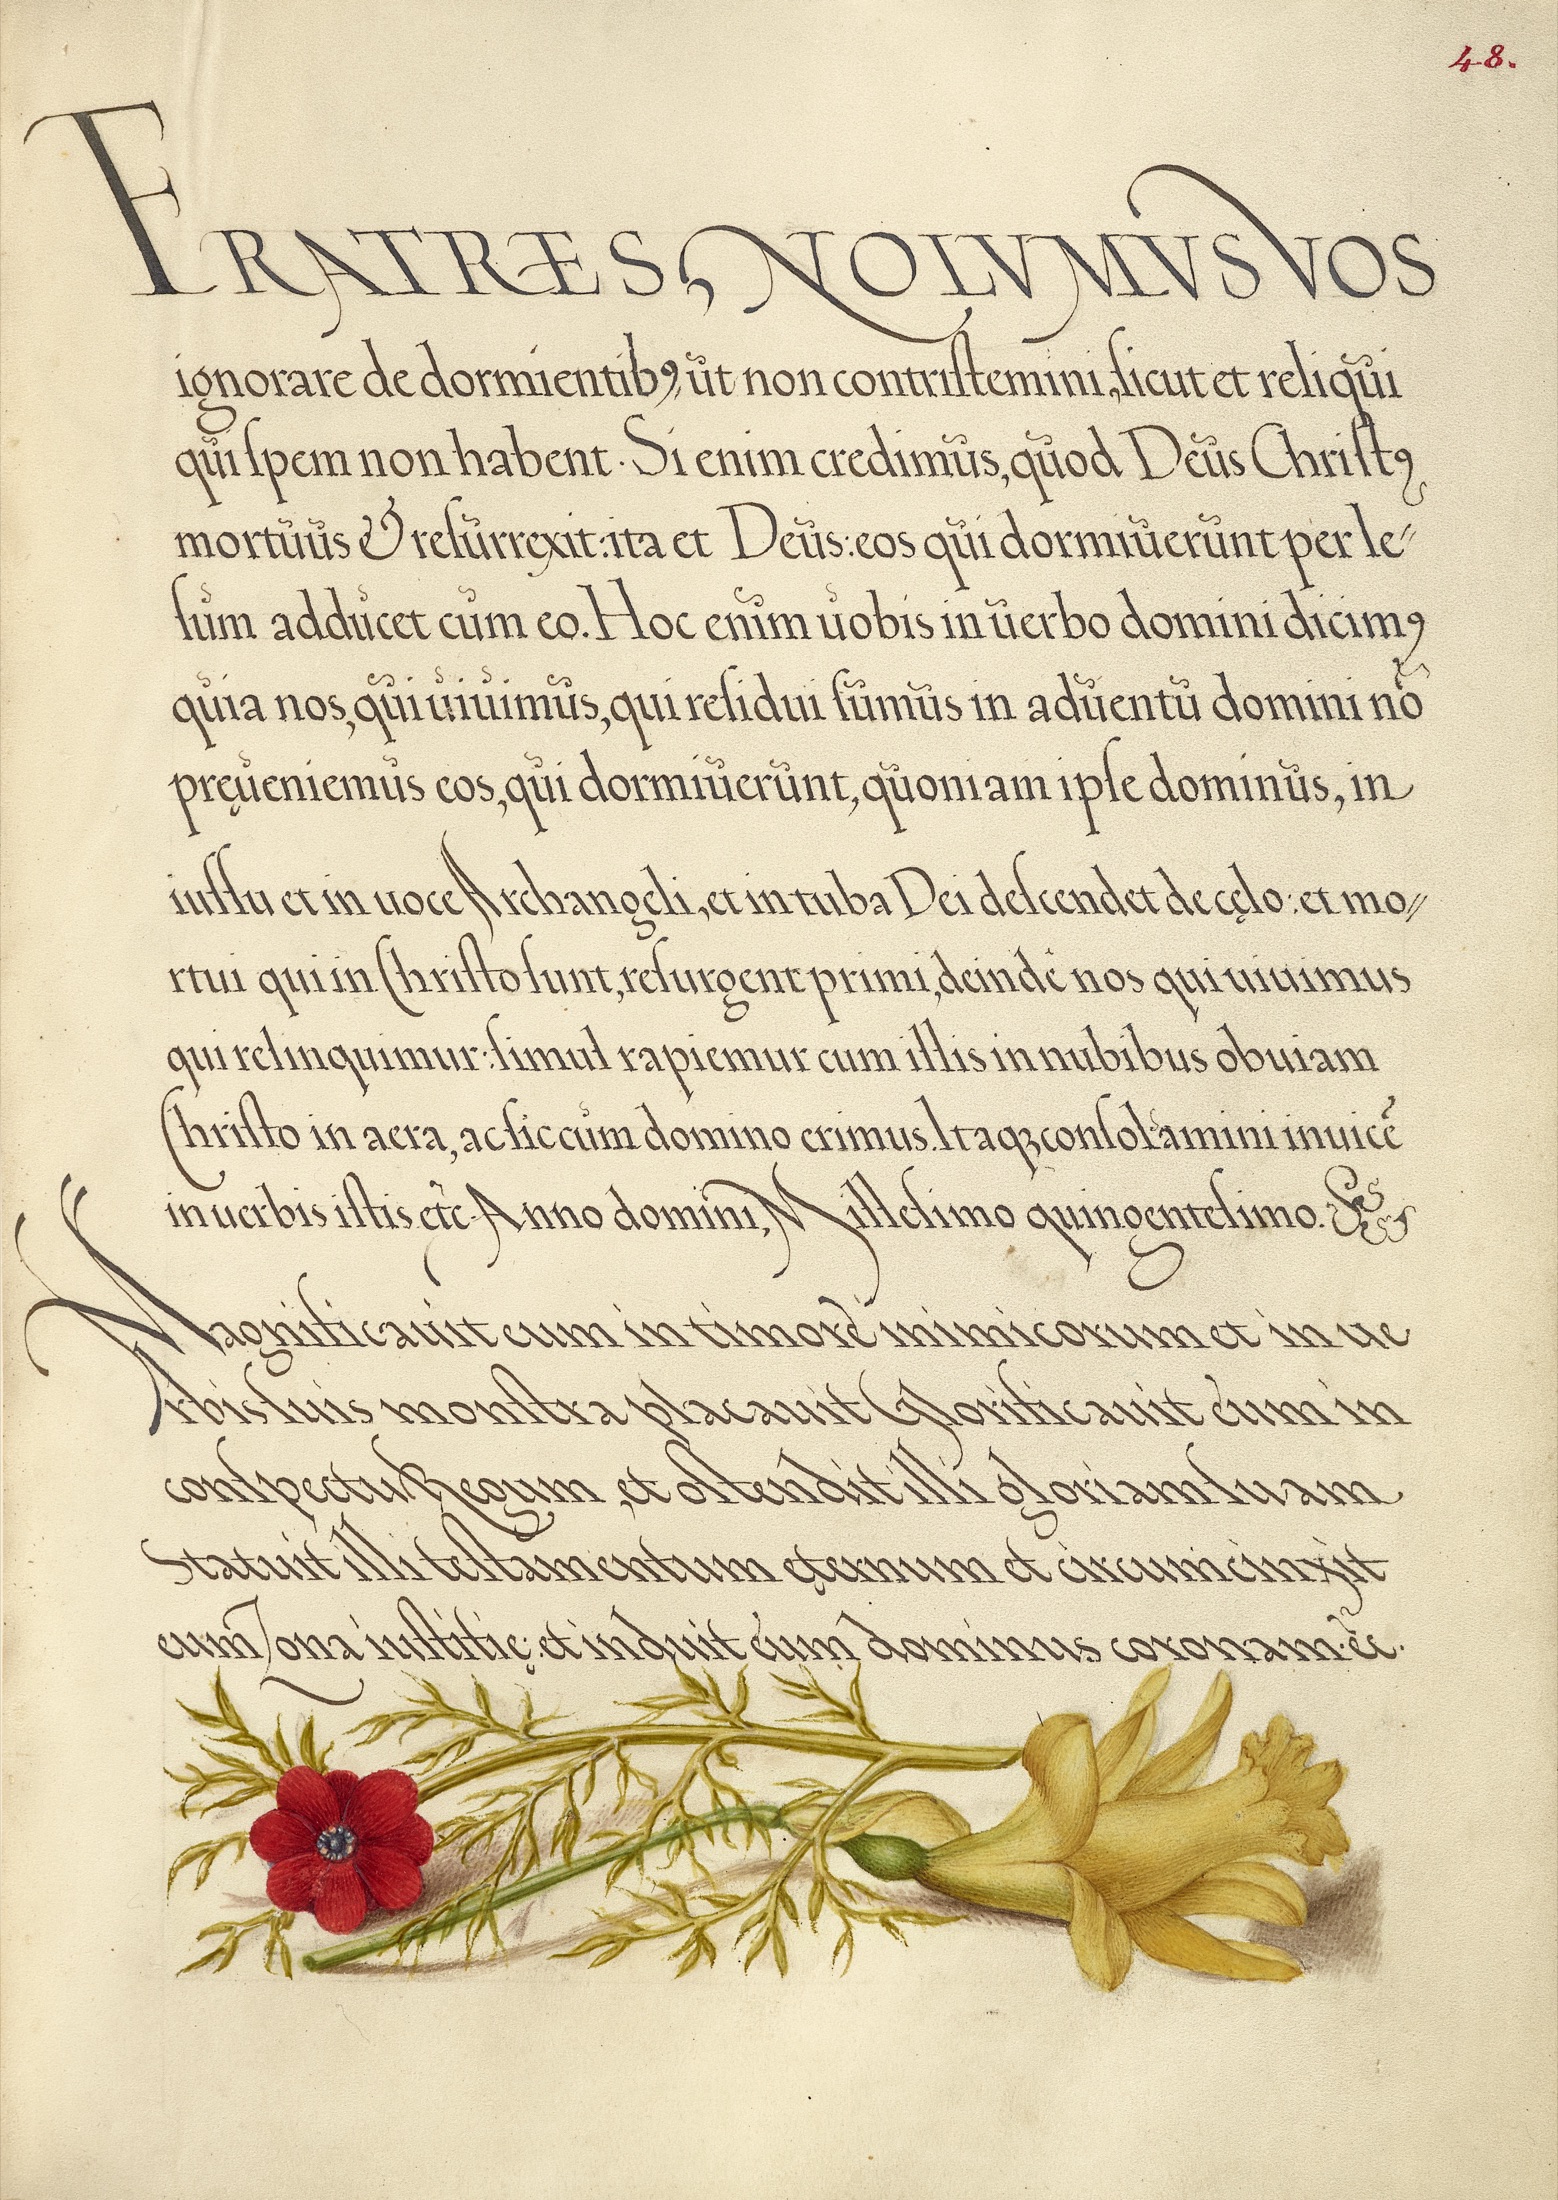 48.
FRATRES, NOLVMVS VOS
ignorare de dormientibꝰ, ŭt non contriſtemini, ſicut et reliqŭi
qŭi ſpem non habent. Si enim credimŭs, qŭod Deŭs Chriſtꝰ
mortŭŭs & reſŭrrexit: ita et Deŭs: eos qŭi dormiŭerŭnt per Ie⸗
ſŭm addŭcet cŭm eo. Hoc enim ŭobis in ŭerbo domini dicimꝰ
qŭia nos, qŭi ŭiŭimŭs, qui reſidui ſŭmŭs in adŭentŭ domini nõ
pręŭeniemŭs eos, qŭi dormiŭerŭnt, qŭoniam ipſe dominŭs, in
iuſſu et in uoce Archangeli, et in tuba Dei deſcendet de cęlo: et mo⸗
rtui qui in Chriſto ſunt, reſurgent primi, deinde nos qui uiuimus
qui relinquimur: ſimul rapiemur cum illis in nubibus obuiam
Chriſto in aera, ac ſic cŭm domino erimus. Itaqꝫ conſolamini inuicẽ
in uerbis iſtis etc. Anno domini, Milleſimo quingenteſimo.
Magnificauit eum in timore inimicorum et in ue
rbis ſuis monſtra placauit Glorificauit eum in
conſpectu Regum, et oſtendit illi gloriam ſuam
Statuit illi teſtamentum ęternum et circumcinxit
eum Zona iuſtitię: et induit eum dominus coronam. ēc.